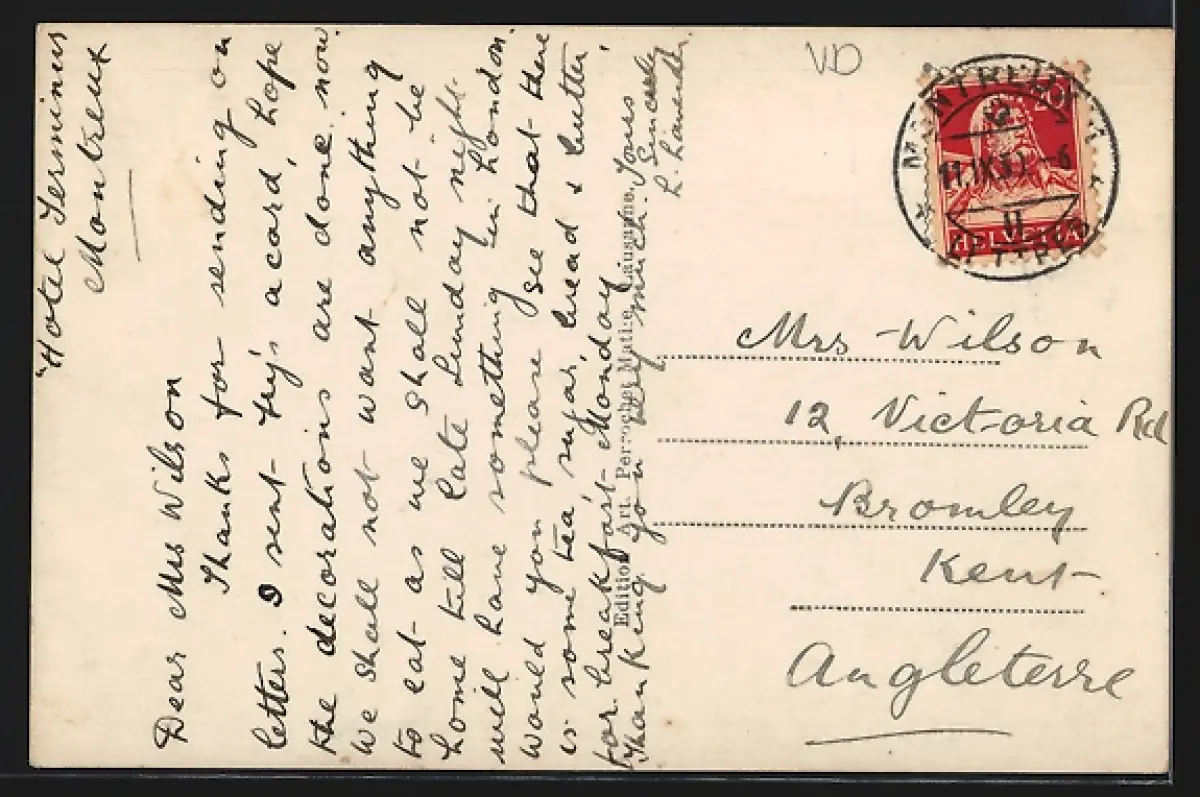 "Hotel Terminus
Montreux
Dear Mrs Wilson
Thanks for sending on
letters. I sent a card, hope
the decorations are done now.
We shall not want anything
to eat as we shall not be
home till late Sunday night.
will have something in London.
Would you please see that there
is some tea, sugar, bread & butter,
for breakfast Monday
Thanking you very much. Yours
Sincerely
Edition Art. Perrochet Matile, Lausanne
VD
MONTREUX
11.IX.3
II
HELVETIA
20
Mrs Wilson
12, Victoria Rd
Bromley
Kent
Angleterre